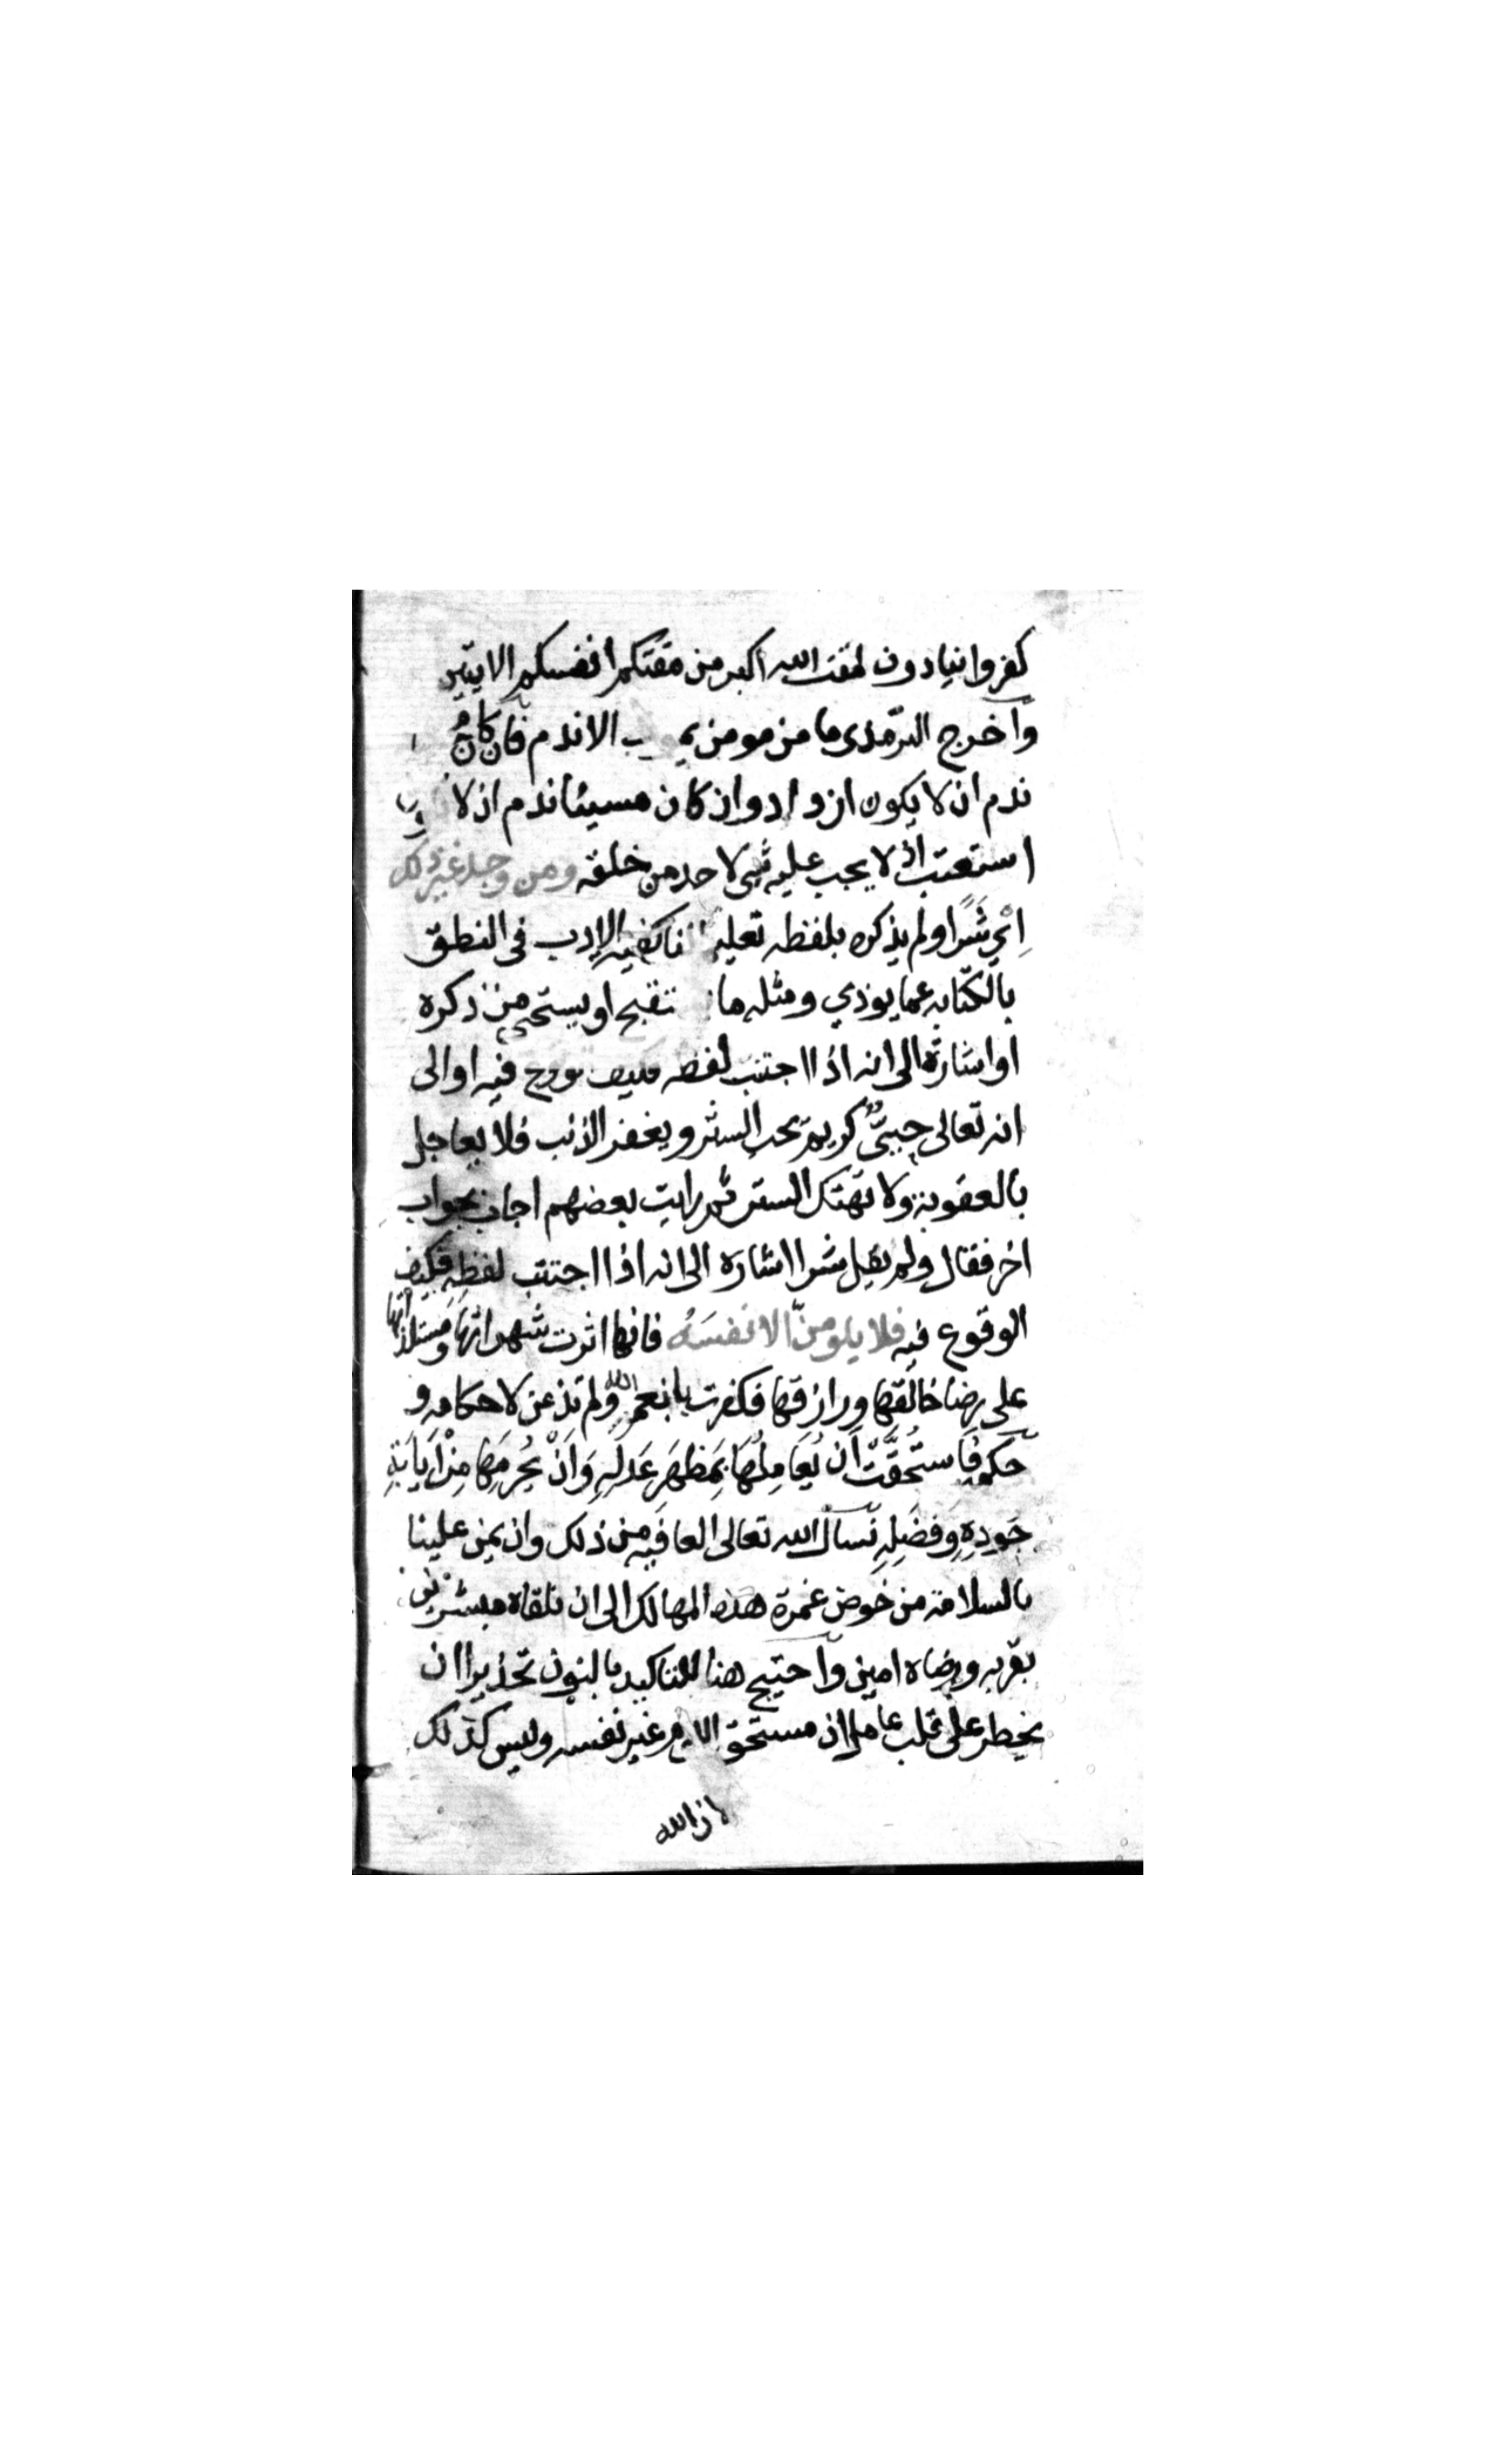 كفروا ينادون لمقت الله اكبر من مقتكم انفسكم الايتين
واخرج الترمذي ما من مومن يموت الا ندم فان كان
ندم ان لا يكون ازداد وان كان مسيئا ندم ان لا
استعتب اذ لا يجب عليه شيء لاحد من خلقه ومن وجد غير ذلك
اي شَرًّا ولم يذكره بلفظه تعليما لنا كيفية الادب في النطق
بالكنايه عما يوذي ومثله ما يستقبح او يستحيى من ذكره
او اشارة الى انه اذا اجتنب لفظه فكيف الوقوع فيه او الى
انه تعالى حييٌّ كريم يحب الستر ويغفر الذنب فلا يعاجل
بالعقوبة ولا يهتك الستر ثم رايت بعضهم اجاب بجواب
اخر فقال ولم يقل شرا اشارة الى انه اذا اجتنب لفظه فكيف
الوقوع فيه فلا يلومنّ الا نفسَهُ فانها اثرت شهواتها ومستلذاتها
على رضا خالقها ورازقها فكفرت بانعم الله ولم تذعن لاحكامه و
حكمه فاستُحقَّت ان يُعَامِلُهَا بِمَظهَرِ عَدلِهِ وَاَنْ يُحرِمَهَا مِنْ اَيَابَةِ
جَودِهِ وَفضلِهِ نَسأل الله تعالى العافيه من ذلك وان يمن علينا
بالسلامة من خوض غمرة هذه المهالك الى ان نلقاه مبشرين
بقربه ورضاه امين واحتيج هنا للتاكيد بالنون تحذيرا ان
يخطر على قلب عامل ان مستحق اللوم غير نفسه وليس كذلك
لان الله